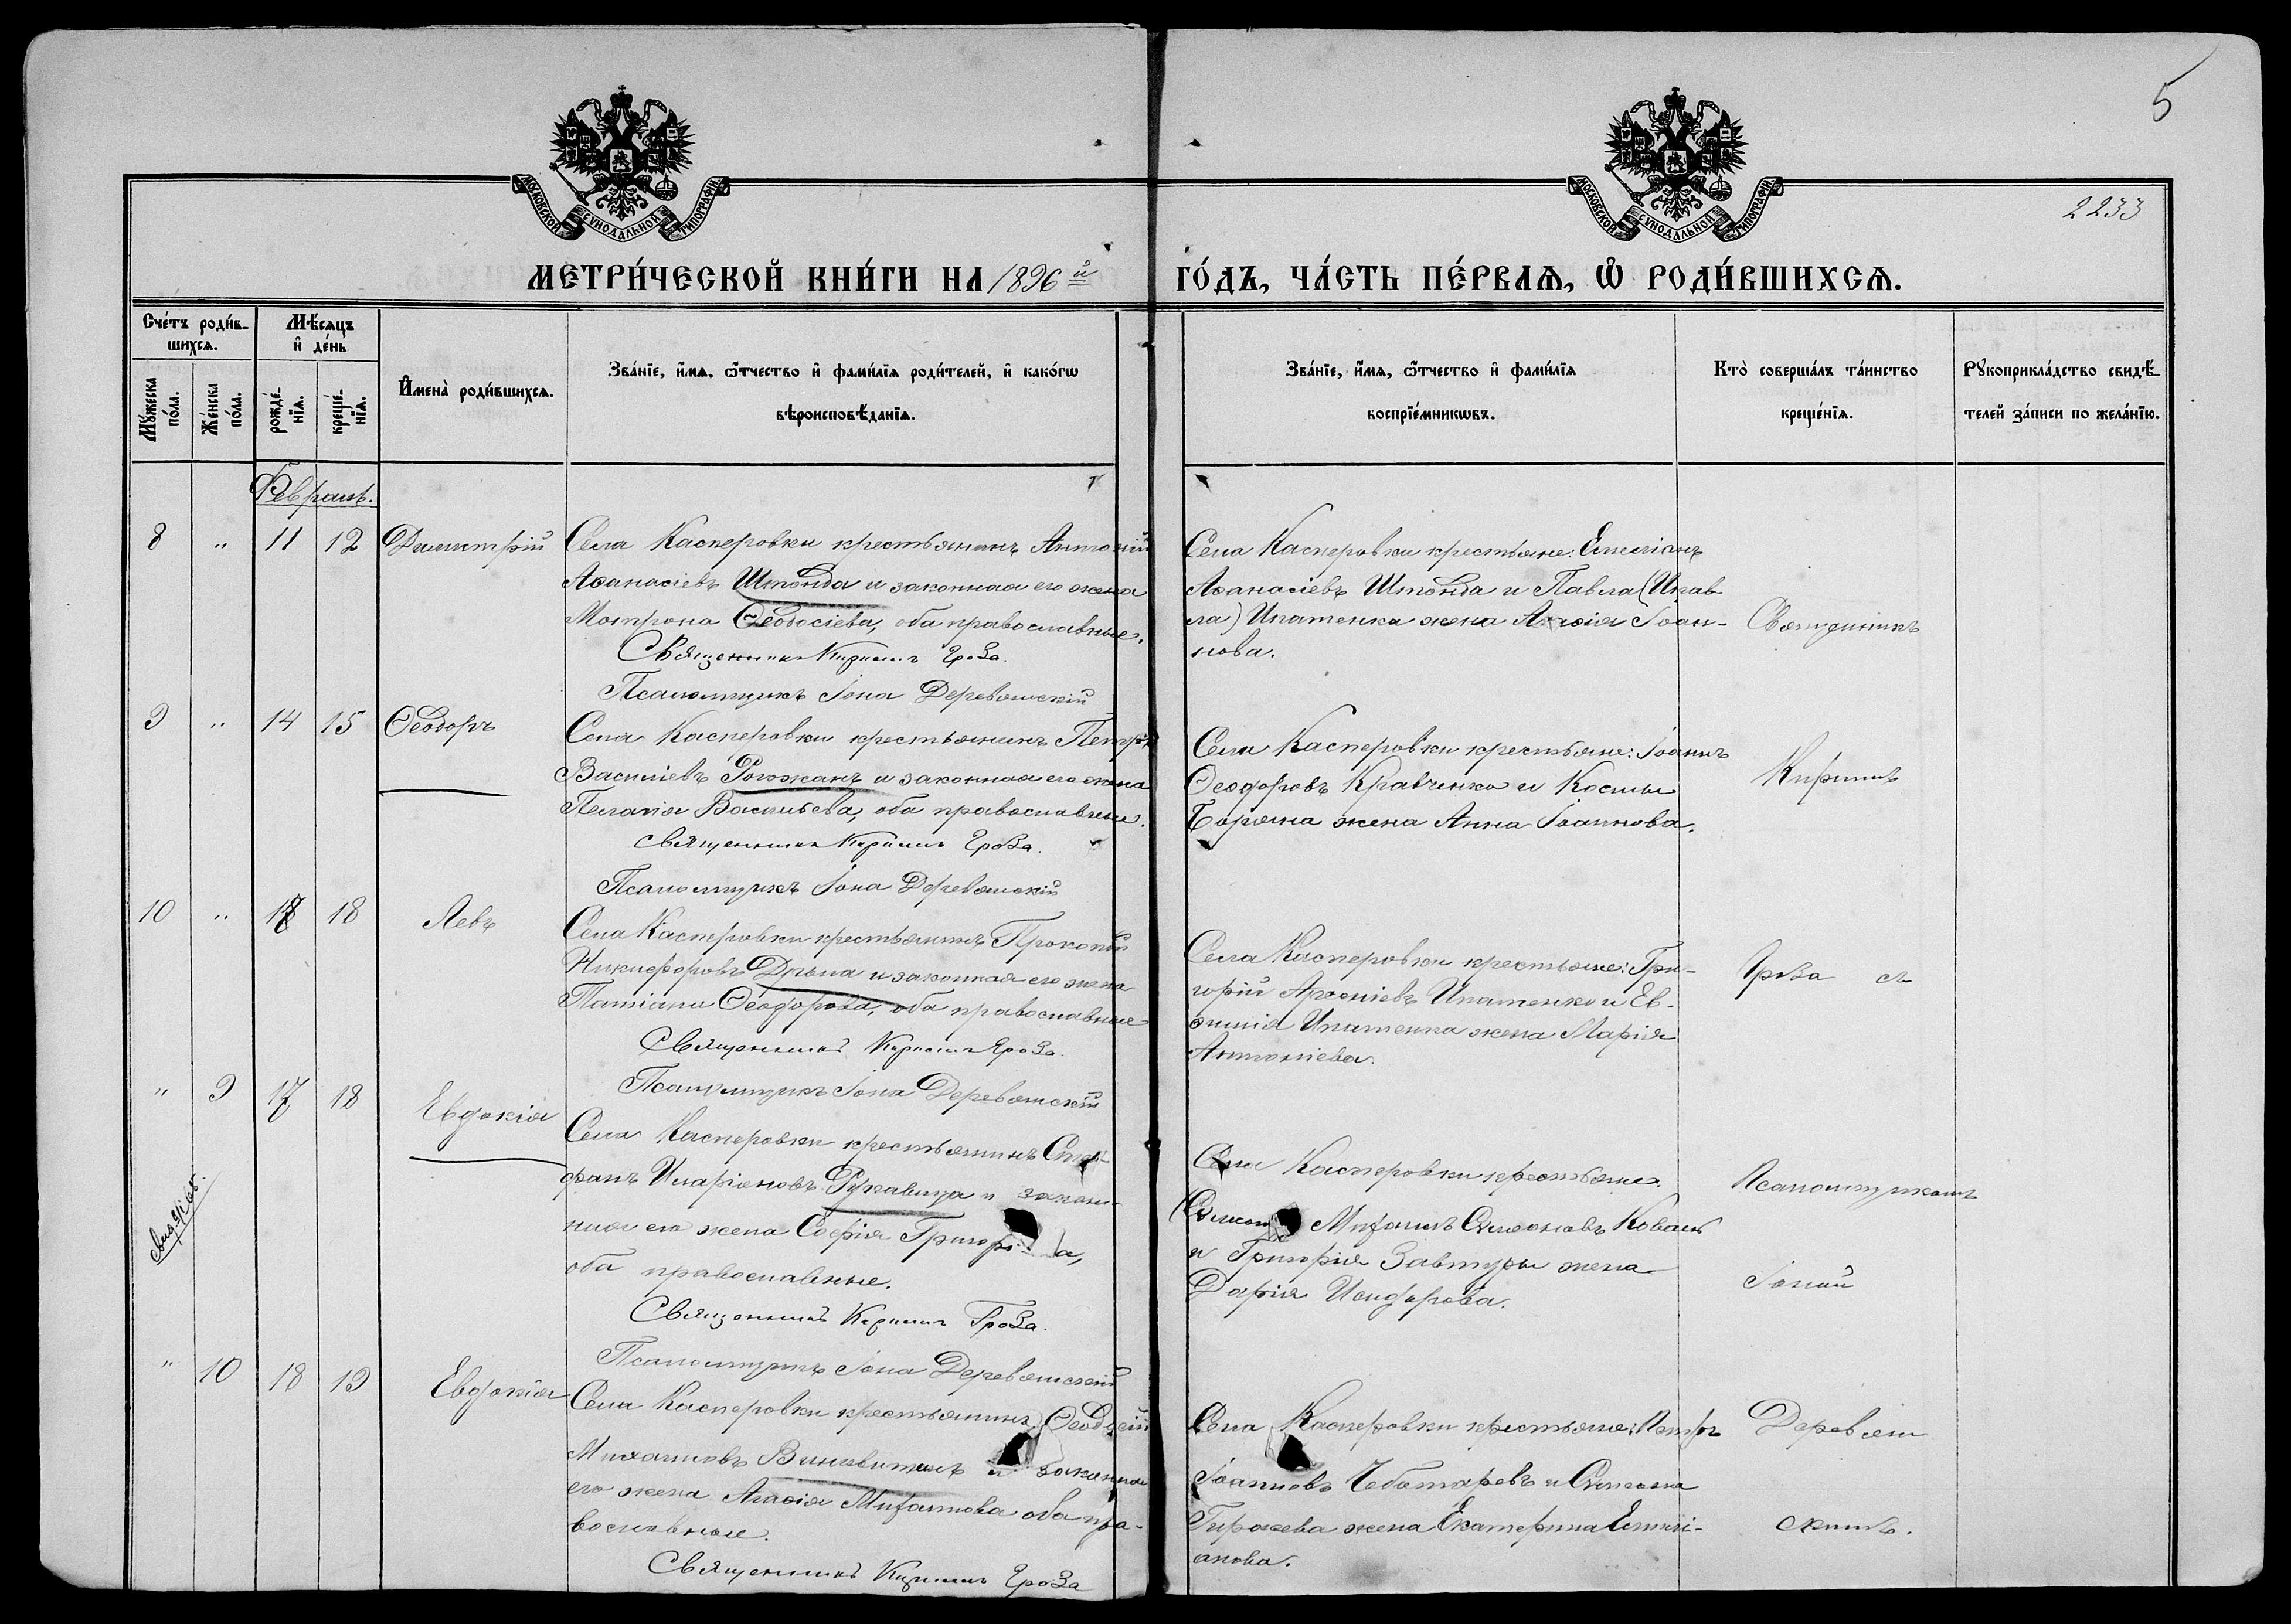 5
2233
МОСКОВСКОЙ СѴНОДАЛЬНОЙ ТИПОГРАФІИ
МОСКОВСКОЙ СѴНОДАЛЬНОЙ ТИПОГРАФІИ
МЕТРИ́ЧЕСКОЙ КНИ́ГИ НА 1896й ГО́ДЪ, ЧА́СТЬ ПЕ́РВАѦ, Ѡ҆ РОДИ́ВШИХСѦ.
Сче́тъ роди́в-
шихсѧ.
Мꙋ́жеска по́ла.
Же́нска по́ла.
Мѣ́сѧцъ
и҆ де́нь
рожде́-нїѧ.
креще́-нїѧ.
И҆мена̀ роди́вшихсѧ.
Зва́нїе, и҆́мѧ, ѻ҆́тчество и҆ фами́лїѧ роди́телей, и҆ како́гѡ
вѣроисповѣ́данїѧ.
Зва́нїе, и҆́мѧ, ѻ҆́тчество и҆ фами́лїѧ
воспрїе́мникѡвъ.
Кто̀ соверша́лъ та́инство
креще́нїѧ.
Рꙋкоприкла́дство свидѣ́-
телей за́писи по жела́нїю.
Февраль.
8 " 11 12 Димитрій
Села Касперовки крестьянинъ Антоній
Аѳанасіевъ Штонда и законная его жена
Мотрона Ѳеодосіева, оба православные.
Священникъ Кириллъ Гроза.
Псаломщикъ Іона Деревянскій
Села Касперовки крестьяне: Емиліанъ
Аѳанасіевъ Штонда и Павла (Ипав-
ла) Ипатенка жена Агаѳія Іоан-
нова.
Священникъ
9 " 14 15 Ѳеодоръ
Села Касперовки крестьянинъ Петръ
Василіевъ Рогожанъ и законная его жена
Пелагія Васильева, оба православные.
Священникъ Кириллъ Гроза.
Псаломщикъ Іона Деревянскій
Села Касперовки крестьяне: Іоаннъ
Ѳеодоровъ Кравченко и Космы
жена Анна Іоаннова.
Кириллъ
10 " 17 18 Левъ
Села Касперовки крестьянинъ Прокопій
Никифоровъ и законная его жена
Татіана Ѳеодорова, оба православные
Священникъ Кириллъ Гроза.
Псаломщикъ Іона Деревянскій
Села Касперовки крестьяне: Гри-
горій Арсеніевъ Ипатенко и Ев-
ѳимія Ипатенка жена Марія
Антоніева.
Гроза съ
" 9 17 18 Евдокія
Села Касперовки крестьянинъ Сте-
фанъ Иларіоновъ Рукавица и закон-
ная его жена Софія
оба православные.
Священникъ Кириллъ Гроза.
Псаломщикъ Іона Деревянскій
Села Касперовки крестьяне:
Михаилъ Симеоновъ Коваль
и Григорія Завтуры жена
Дарія Исидорова.
Псаломщикомъ
Іоной
" 10 18 19 Евдокія
Села Касперовки крестьянинъ Ѳеодосій
Михаиловъ и законная
его жена Агаѳія Михаилова оба пра-
вославные.
Священникъ Кириллъ Гроза
Села Касперовки крестьяне: Петръ
Іоанновъ Чеботаревъ и Симеона
жена Екатерина Емилі-
анова.
Деревян
скимъ.